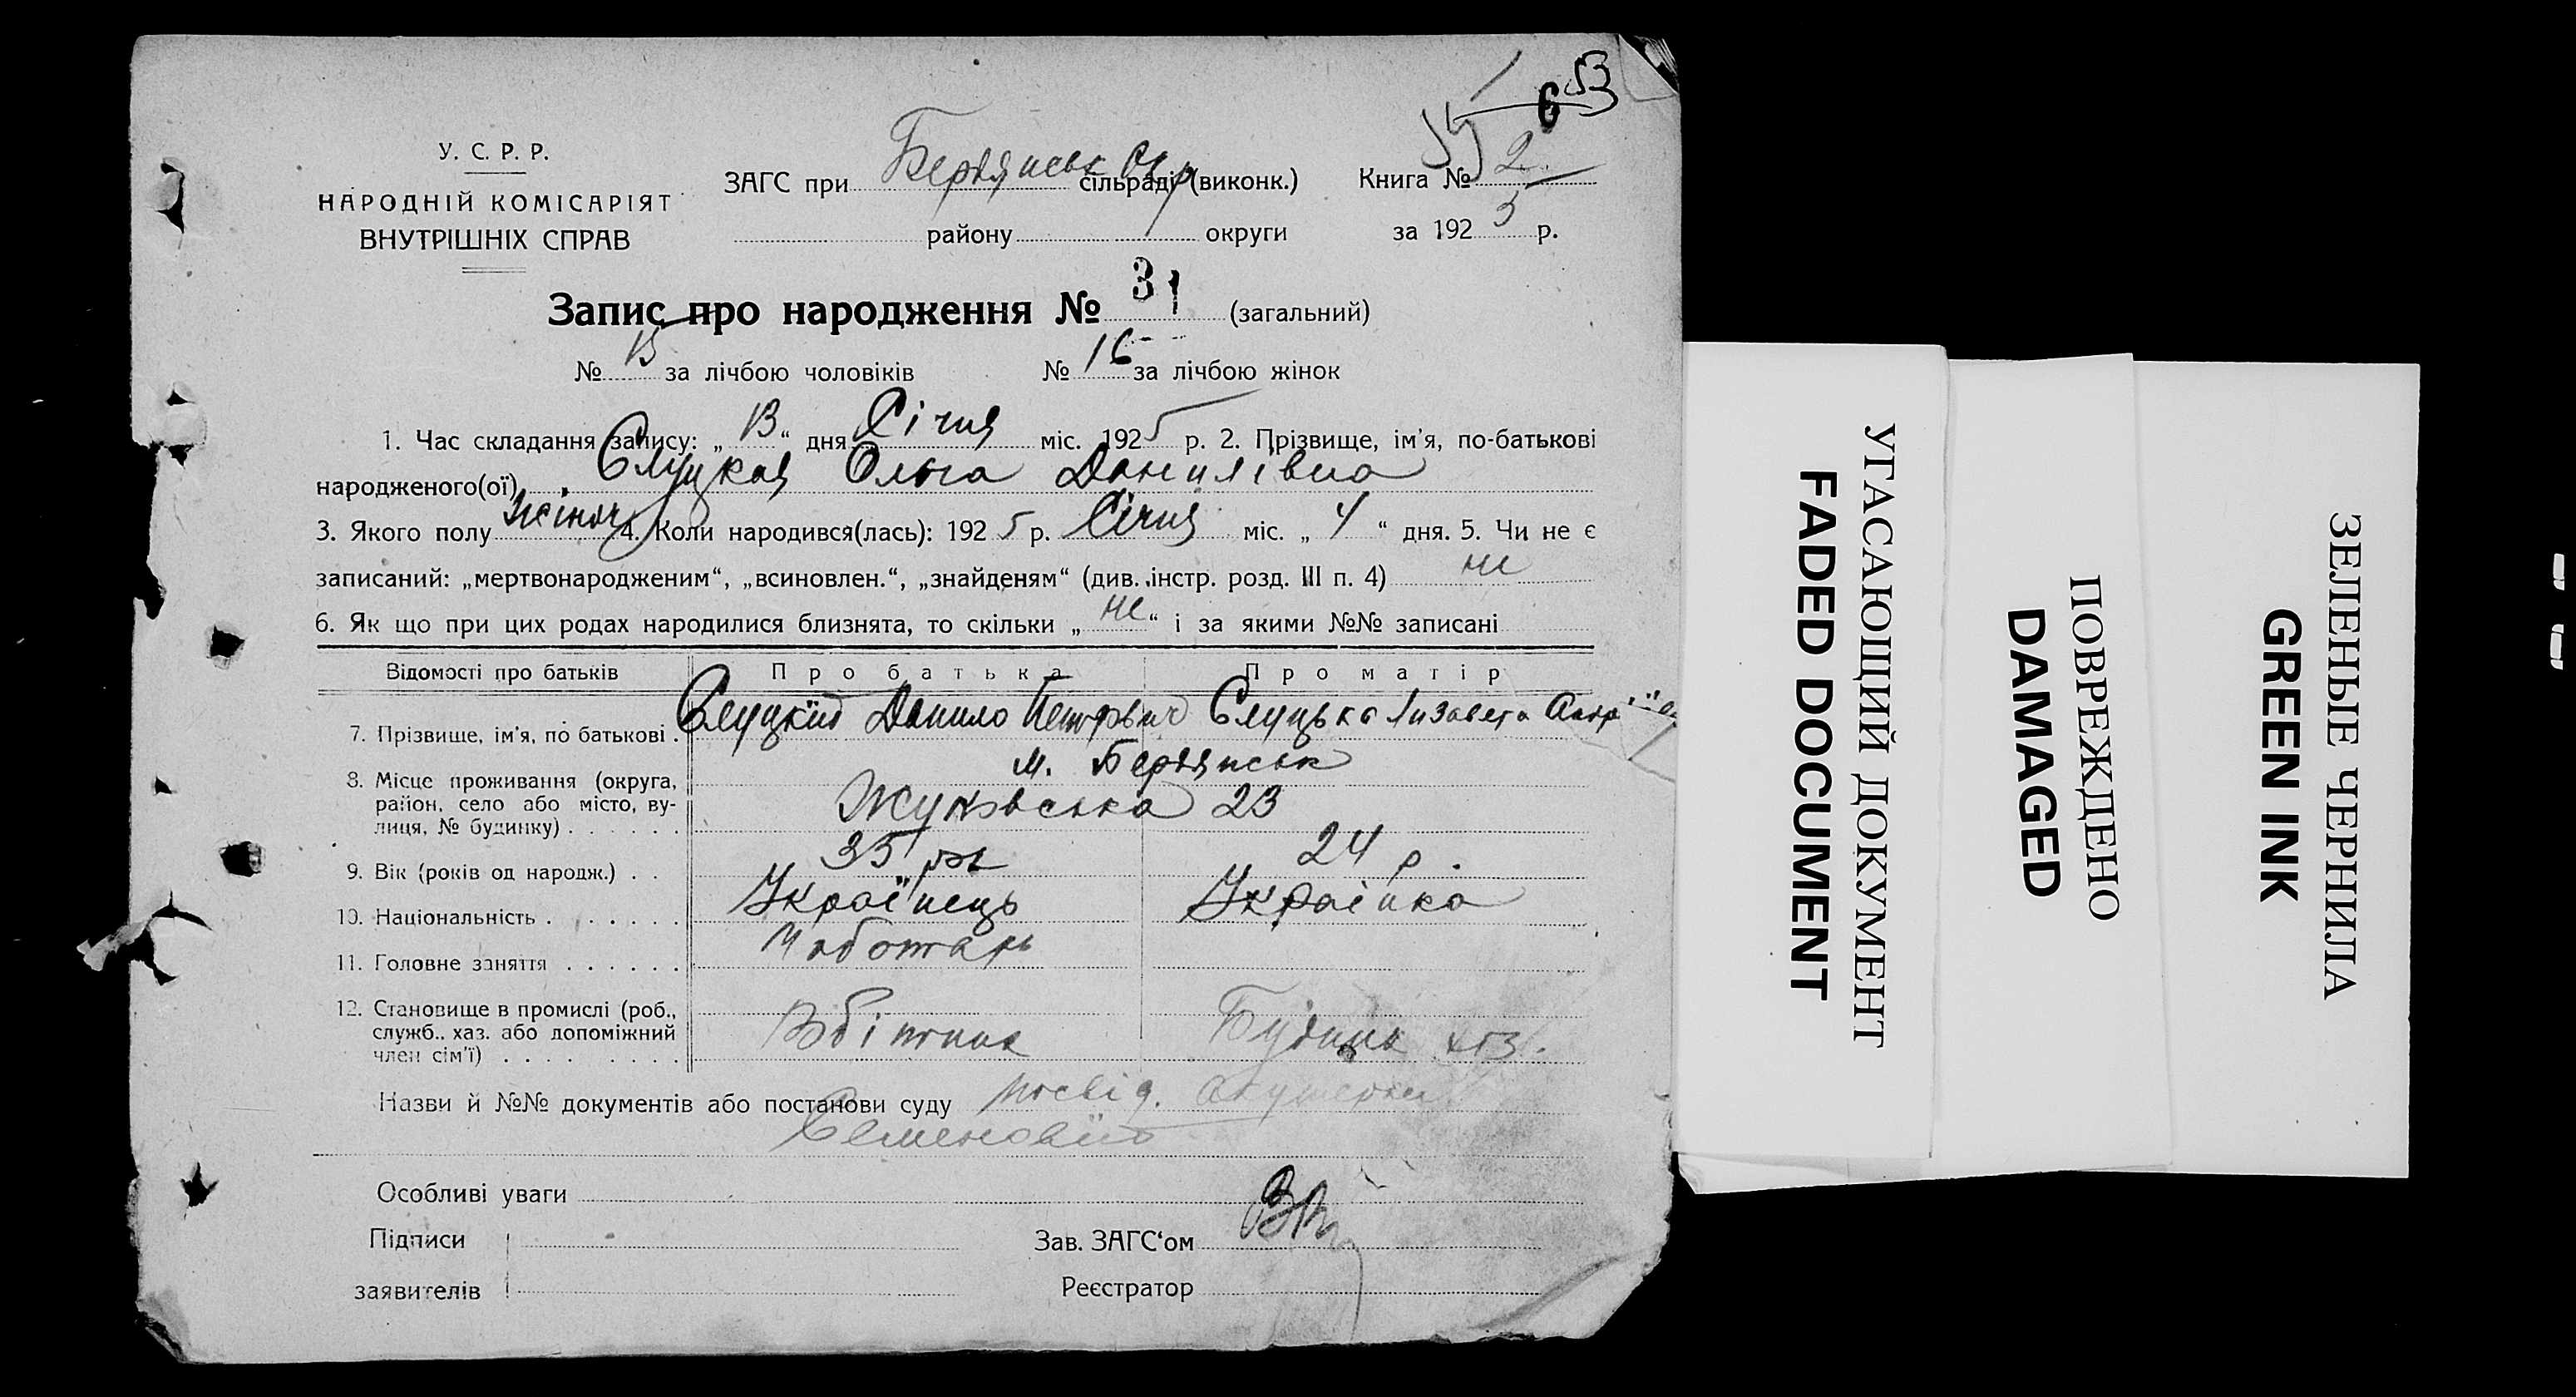 6 53
У. С. Р. Р.
НАРОДНІЙ КОМІСАРІЯТ
ВНУТРІШНІХ СПРАВ
ЗАГС при Бердянськ сільраді (виконк.)
району округи
Книга № 2
за 1925 р.
Запис про народження № 31 (загальний)
№ 15 за лічбою чоловіків № 16 за лічбою жінок
1. Час складання запису: „13“ дня Січня міс. 1925 р. 2. Прізвище, ім'я, по-батькові
народженого(ої) Слуцкая Ольга Данилівна
3. Якого полу жіноч 4. Коли народився(лась): 1925 р. Січня міс. „4“ дня. 5. Чи не є
записаний: „мертвонародженим“, „всиновлен.“, „знайденям“ (див. інстр. розд. III п. 4) ні
6. Як що при цих родах народилися близнята, то скільки „ні“ і за якими №№ записані
Відомості про батьків Про батька Про матір
7. Прізвище, ім'я, по батькові . Слуцкий Данило Петрович Слуцька Лизавета
8. Місце проживання (округа, район, село або місто, вулиця, № будинку) . . . . . . м. Бердянськ
Жуковська 23
9. Вік (років од народж.) . . 35 24 р.
10. Національність . . . . . . . Українець Українка
11. Головне заняття . . . . . . Чоботарь
12. Становище в промислі (роб., служб.. хаз. або допоміжний член сім'ї) . . . . . . . . .
Назви й №№ документів або постанови суду посвід. акушерки
Особливі уваги
Підписи
заявителів
Зав. ЗАГС'ом
Реєстратор
УГАСАЮЩИЙ ДОКУМЕНТ
FADED DOCUMENT
ПОВРЕЖДЕНО
DAMAGED
ЗЕЛЕНЫЕ ЧЕРНИЛА
GREEN INK